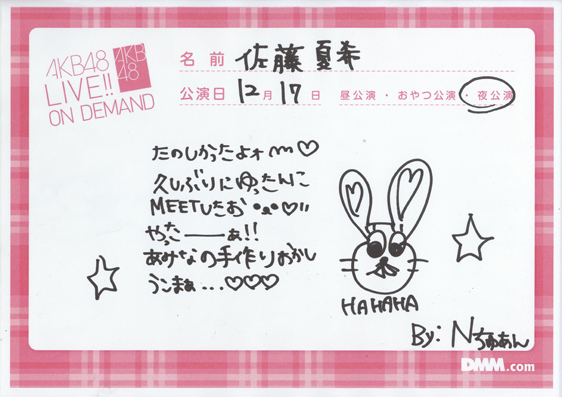 AKB48
LIVE!!
ON DEMAND
AKB
48
名前 佐藤夏希
公演日 12月17日 昼公演・おやつ公演・夜公演
たのしかったよォm♡
久しぶりにゆったんに
MEETしたお ♡!!
やったーーぁ!!
あみなの手作りおかし
うこまぁ...♡♡♡
HAHAHA
By: Nちゅあん
DMM.com